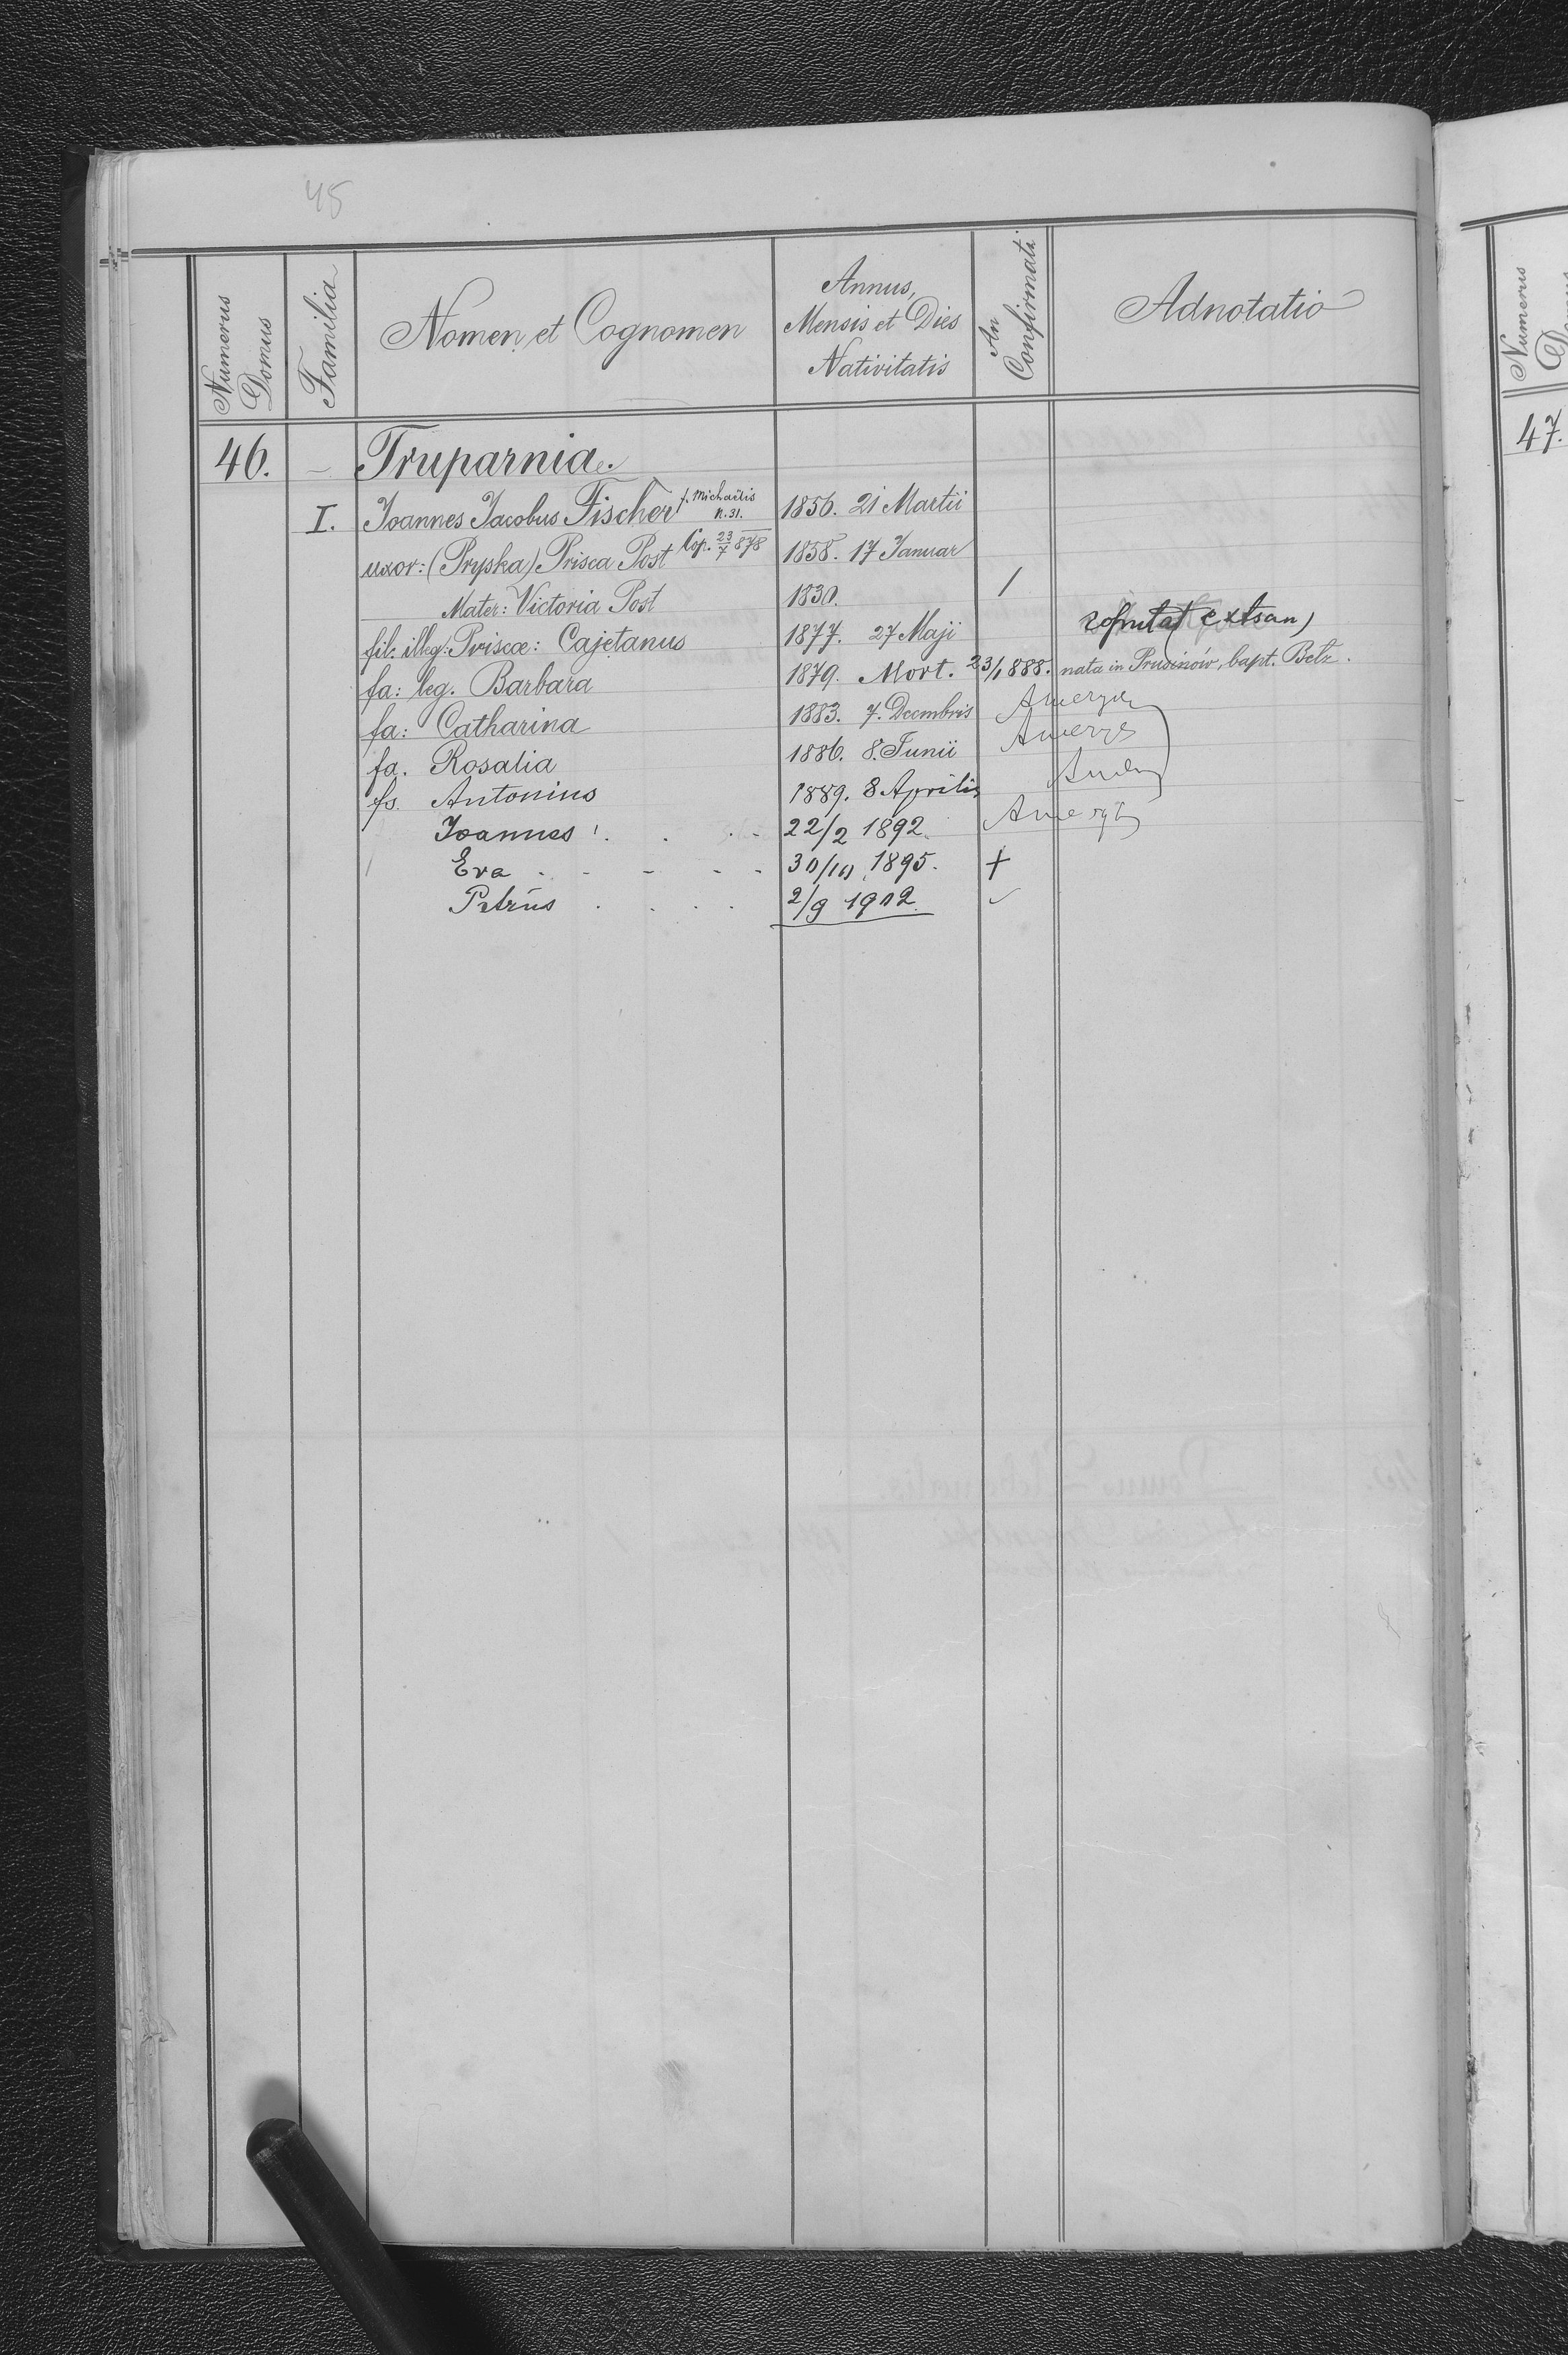 45
Numerus Domus
Familia
Nomen et Cognomen
Annus, Mensis et Dies Nativitatis
An Confirmati
Adnotatio
46. – Truparnia.
I. Joannes Jacobus Fischer f. Michaëlis n. 31. 1856. 21 Martii
uxor: (Pryska) Prisca Post Cop. 23/7 878 1858. 17 Januar
Mater: Victoria Post 1830. /
fil: illeg: Priscæ: Cajetanus 1877. 27 Maji
fa: leg. Barbara 1879. Mort. 23/1 888. nata in Prusinów, bapt. Bełz.
fa: Catharina 1883. 7. Decmbris
fa. Rosalia 1886. 8. Junii
fs. Antonius 1889. 8 Aprilis
Joannes 22/2 1892.
Eva - - - - - 30/10 1895. +
Petrus . . . . 2/9 1902. ✓
Numerus
47.